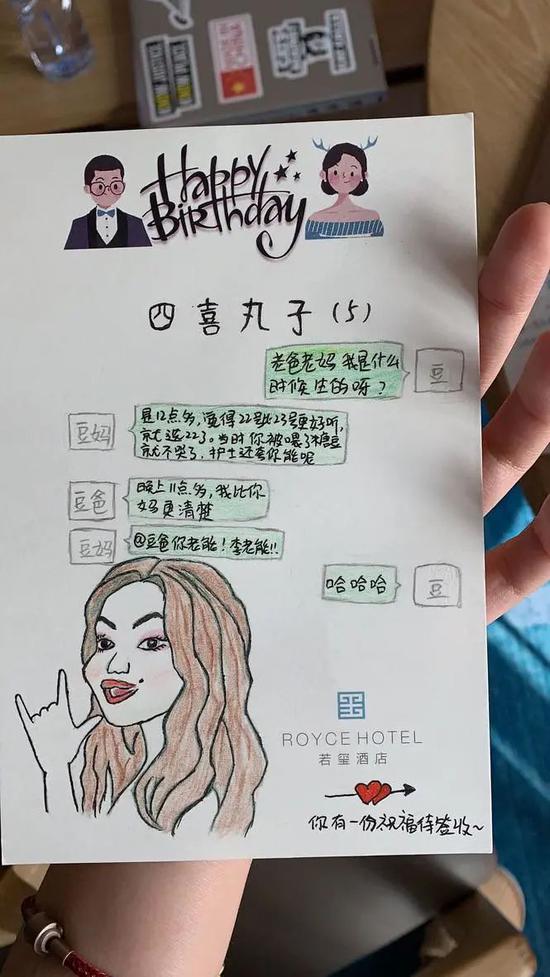 Happy
Birthday
四喜丸子(5)
老爸老妈 我是什么
时候生的呀?
豆
豆妈
是12点多,觉得22号比23号更好听,
就选22了。当时你被喂了糖
就不哭了,护士还夸你能呢
豆爸
晚上11点多,我比你
妈更清楚
豆妈
@豆爸你老能!李老能!!
哈哈哈
豆
ROYCE HOTEL
若玺酒店
你有一份祝福待签收~